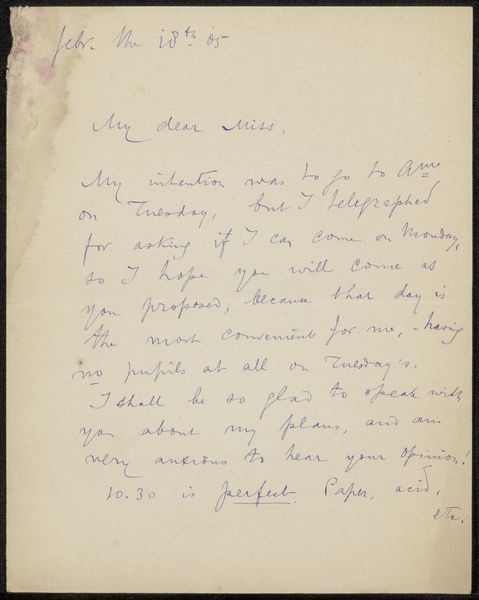 febr. the 18th '05
My dear Miss,
My intention was to go to Ame
on Tuesday, but I telegraphed
for asking if I can come on Monday,
so I hope you will come as
you proposed, because that day is
the most convenient for me, – having
no pupils at all on Tuesday's.
I shall be so glad to speak with
you about my plans, and am
very anxious to hear your opinion!
10.30 is perfect. Paper, acid,
etc.